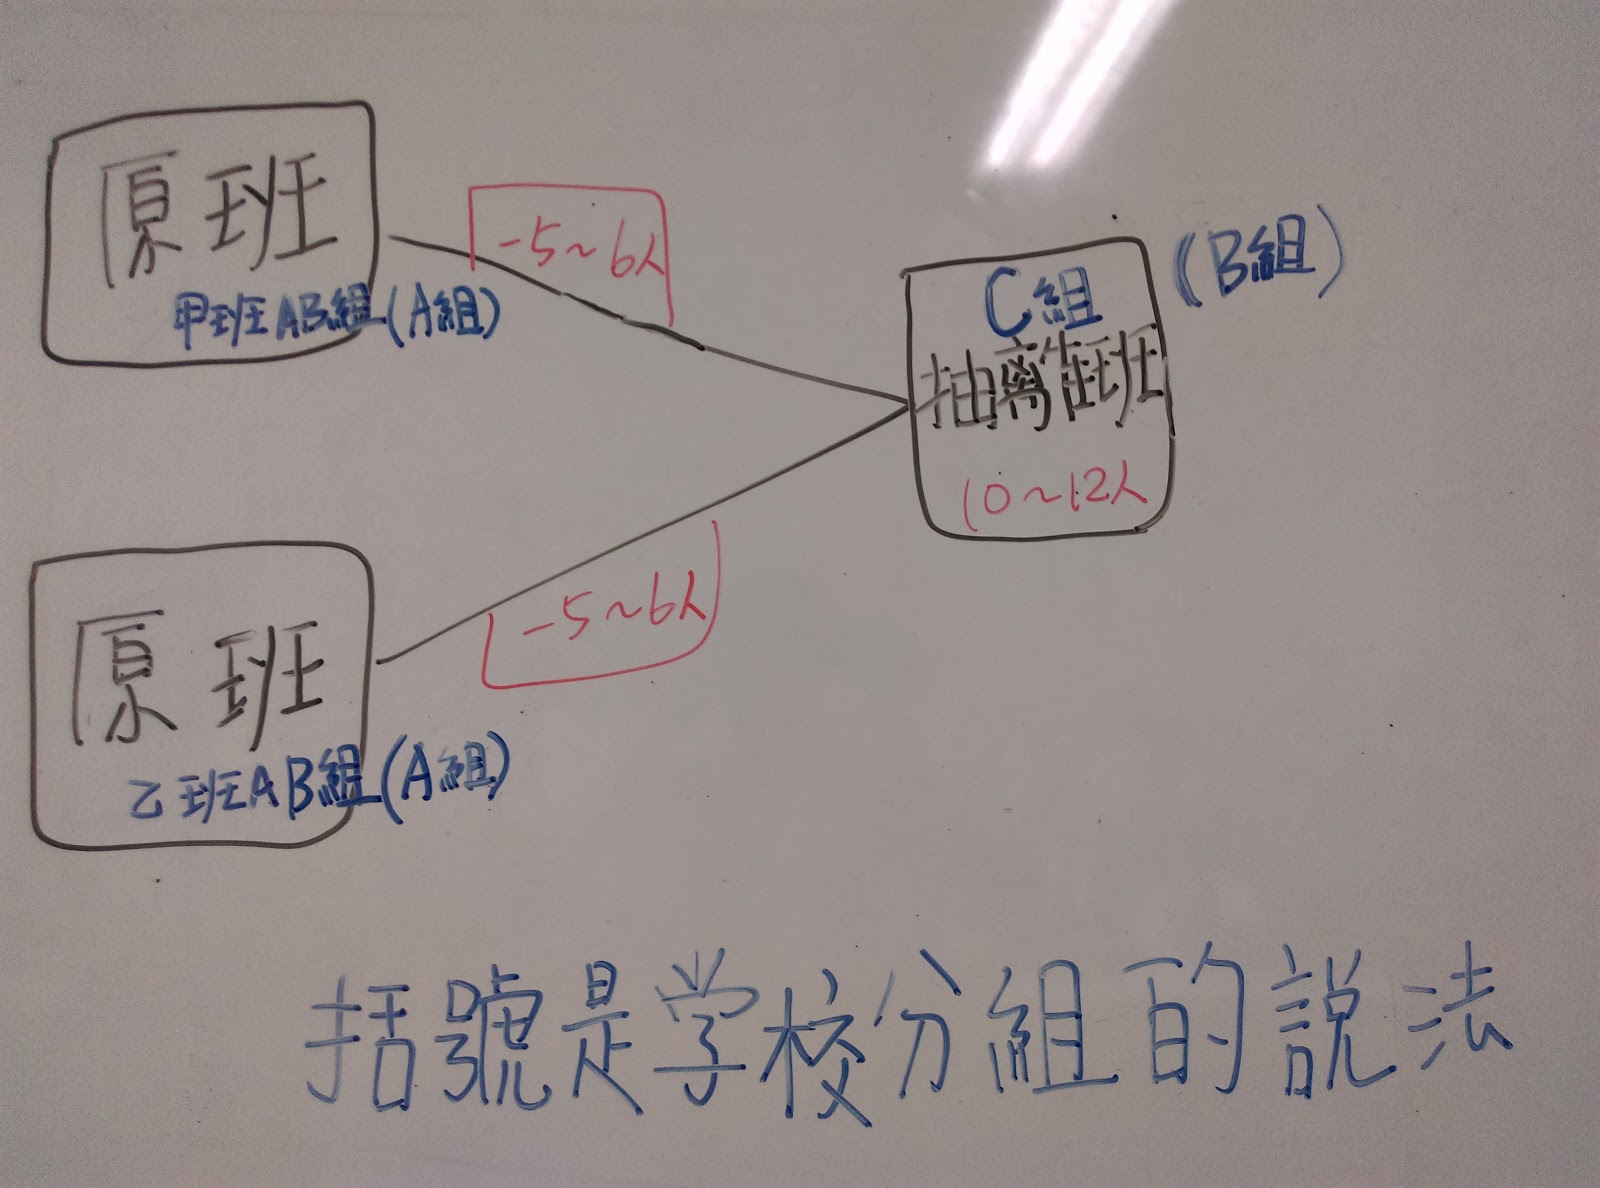 原班
甲班AB組(A組)
-5~6人
C組
(B組)
抽離班
10~12人
原班
乙班AB組(A組)
-5~6人
括號是学校分組的説法